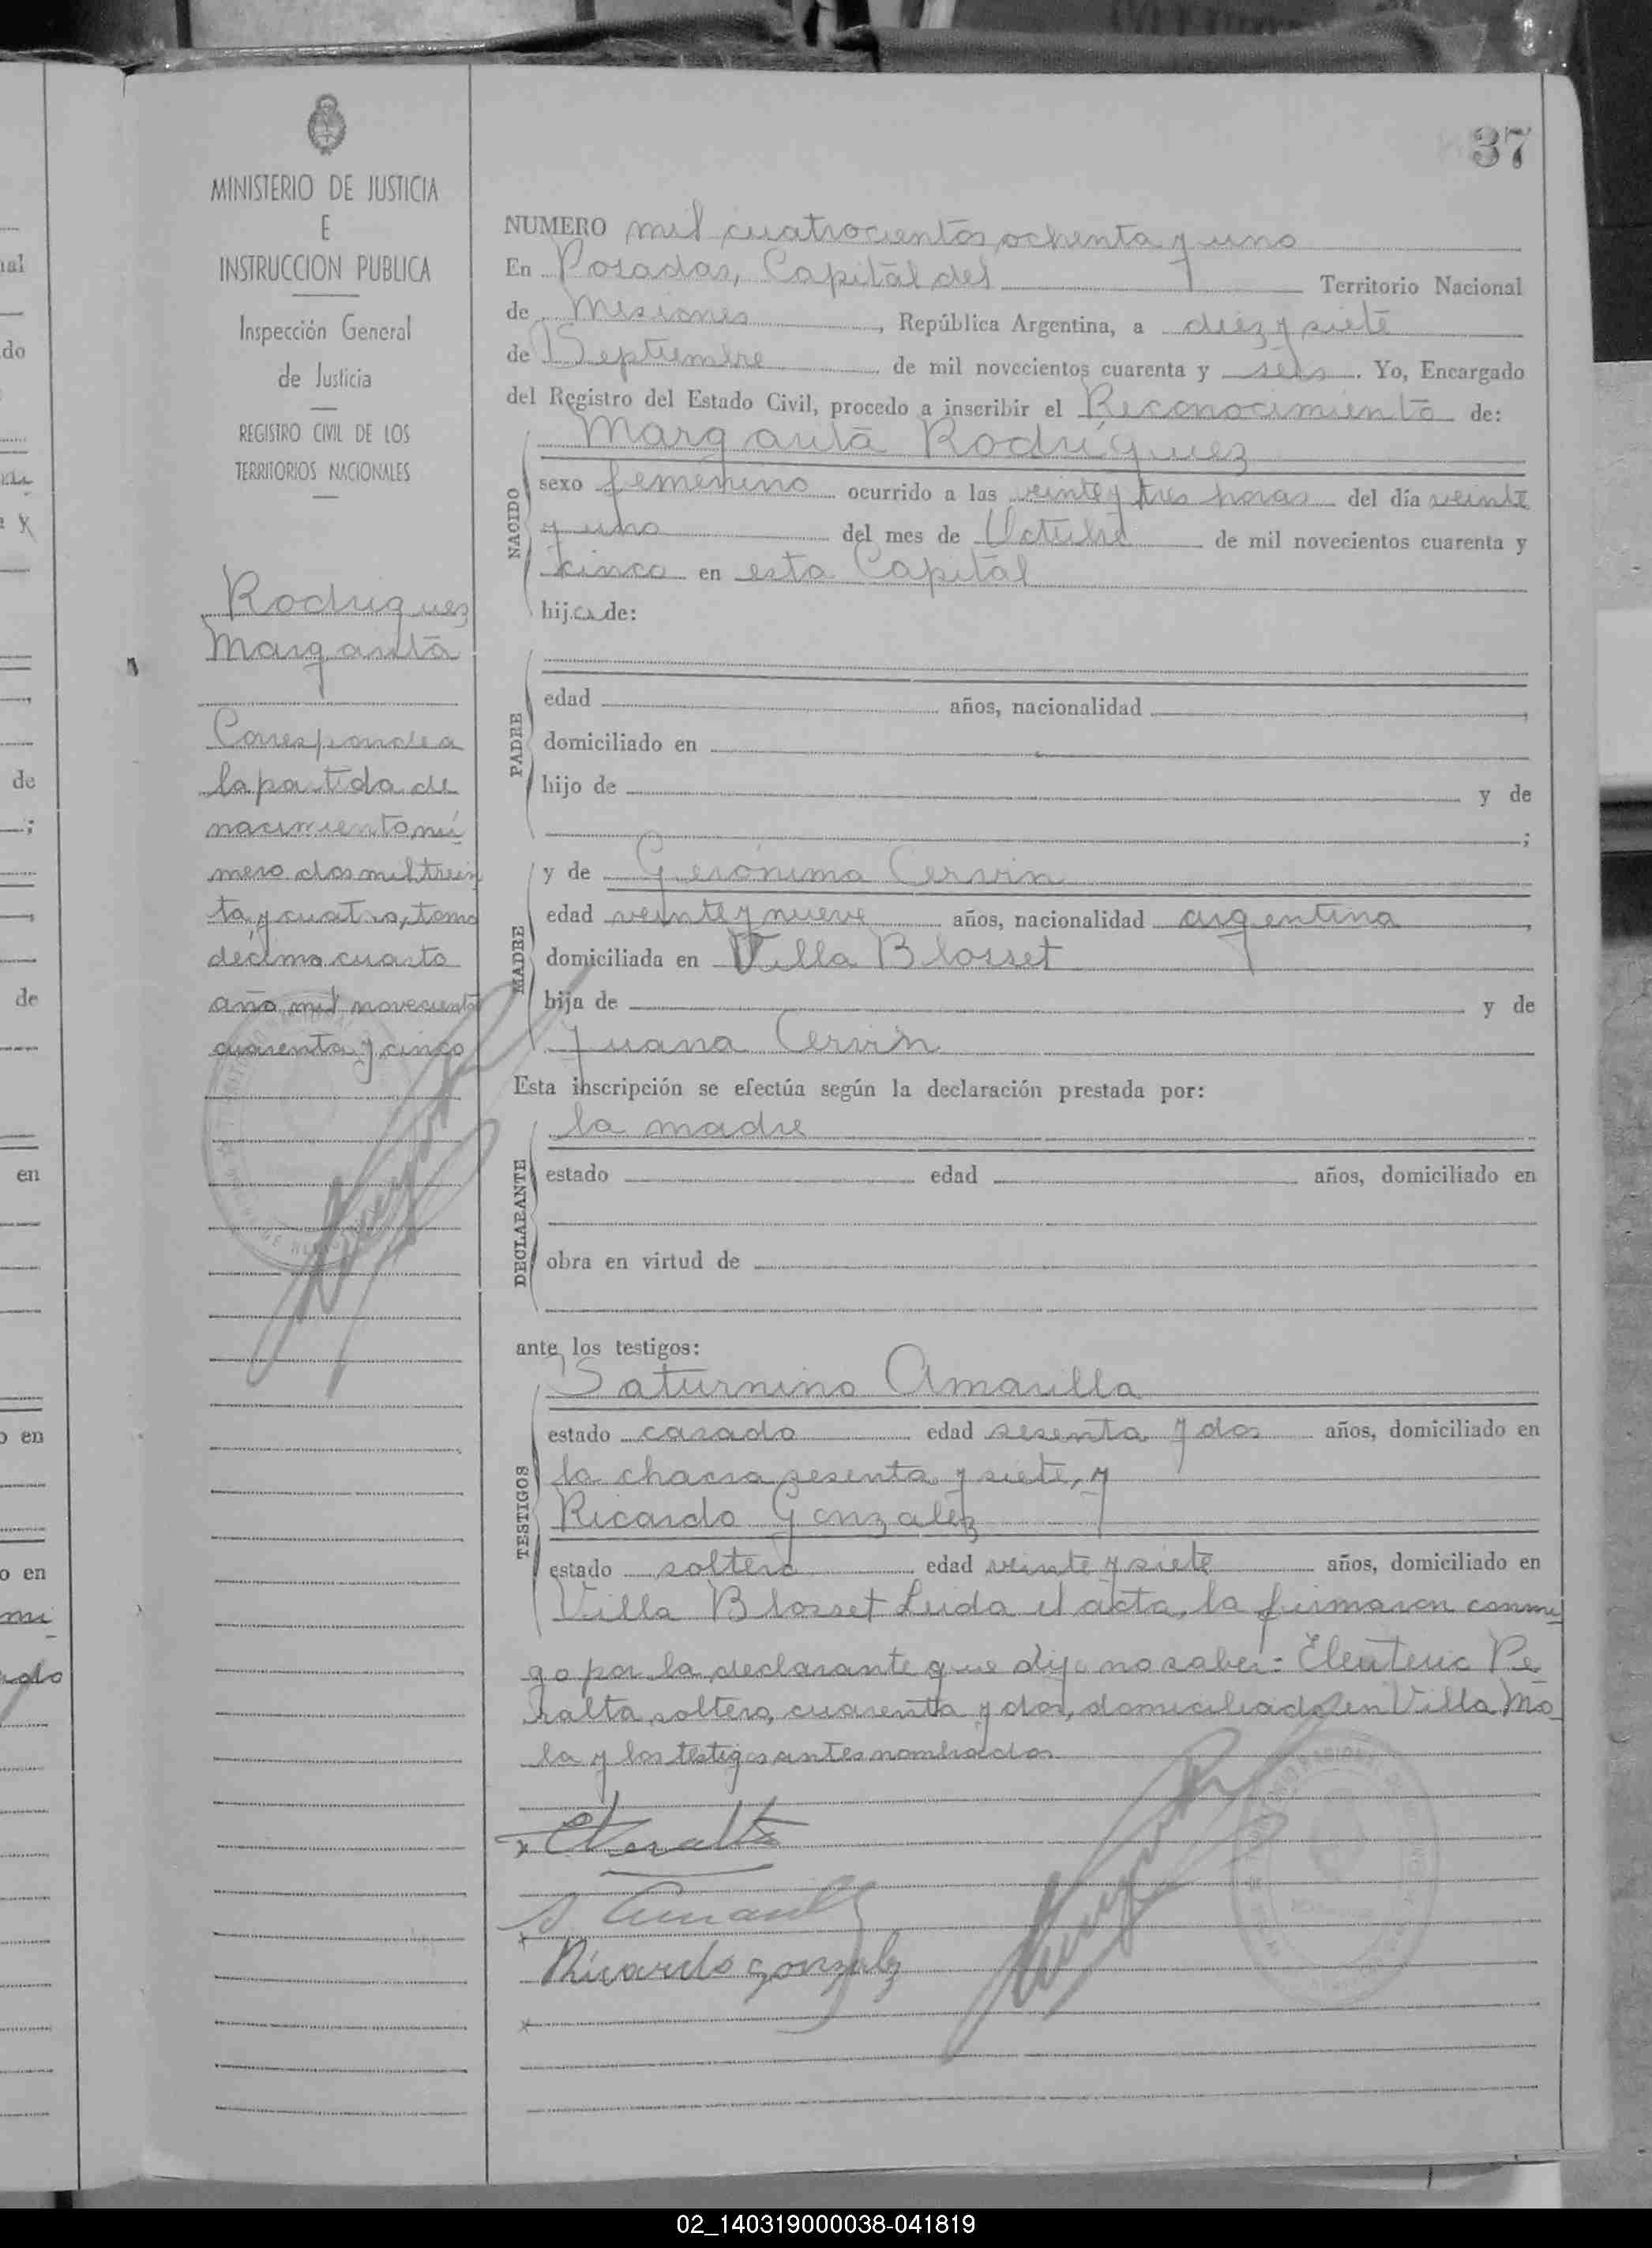 37
MINISTERIO DE JUSTICIA
E
INSTRUCCION PUBLICA
Inspección General
de Justicia
REGISTRO CIVIL DE LOS
TERRITORIOS NACIONALES
Rodriguez
Margarita
Corresponde a
la partida de
nacimiento nú
mero dos mil trein
ta y cuatro, tomo
décimo cuarto
año mil novecientos
cuarenta y cinco
NUMERO mil cuatrocientos ochenta y uno
En Posadas, Capital del Territorio Nacional
de Misiones, República Argentina, a diez y siete
de Septiembre de mil novecientos cuarenta y seis. Yo, Encargado
del Registro del Estado Civil, procedo a inscribir el Reconocimiento de:
Margarita Rodríguez
NACIDO
sexo femenino ocurrido a las veinte y tres horas del día veinte
y uno del mes de Octubre de mil novecientos cuarenta y
cinco en esta Capital
hija de:
PADRE
edad años, nacionalidad ,
domiciliado en
hijo de y de
;
MADRE
y de Gerónima Cervin
edad veinte y nueve años, nacionalidad argentina,
domiciliada en Villa Blosset
hija de y de
Juana Cervin
Esta inscripción se efectúa según la declaración prestada por:
la madre
DECLARANTE
estado edad años, domiciliado en
obra en virtud de
ante los testigos:
Saturnino Amarilla
TESTIGOS
estado casado edad sesenta y dos años, domiciliado en
la chacra sesenta y siete, y
Ricardo Gonzalez
estado soltero edad veinte y siete años, domiciliado en
Villa Blosset Leida el acta, la firmaron conmi
go por la declarante que dijo no saber: Eleuterio Pe
ralta, soltero, cuarenta y dos, domiciliado en Villa Mo
la y los testigos antes nombrados
x EPeralta
S Amarilla
x
Ricardo gonzalez
x
02_140319000038-041819